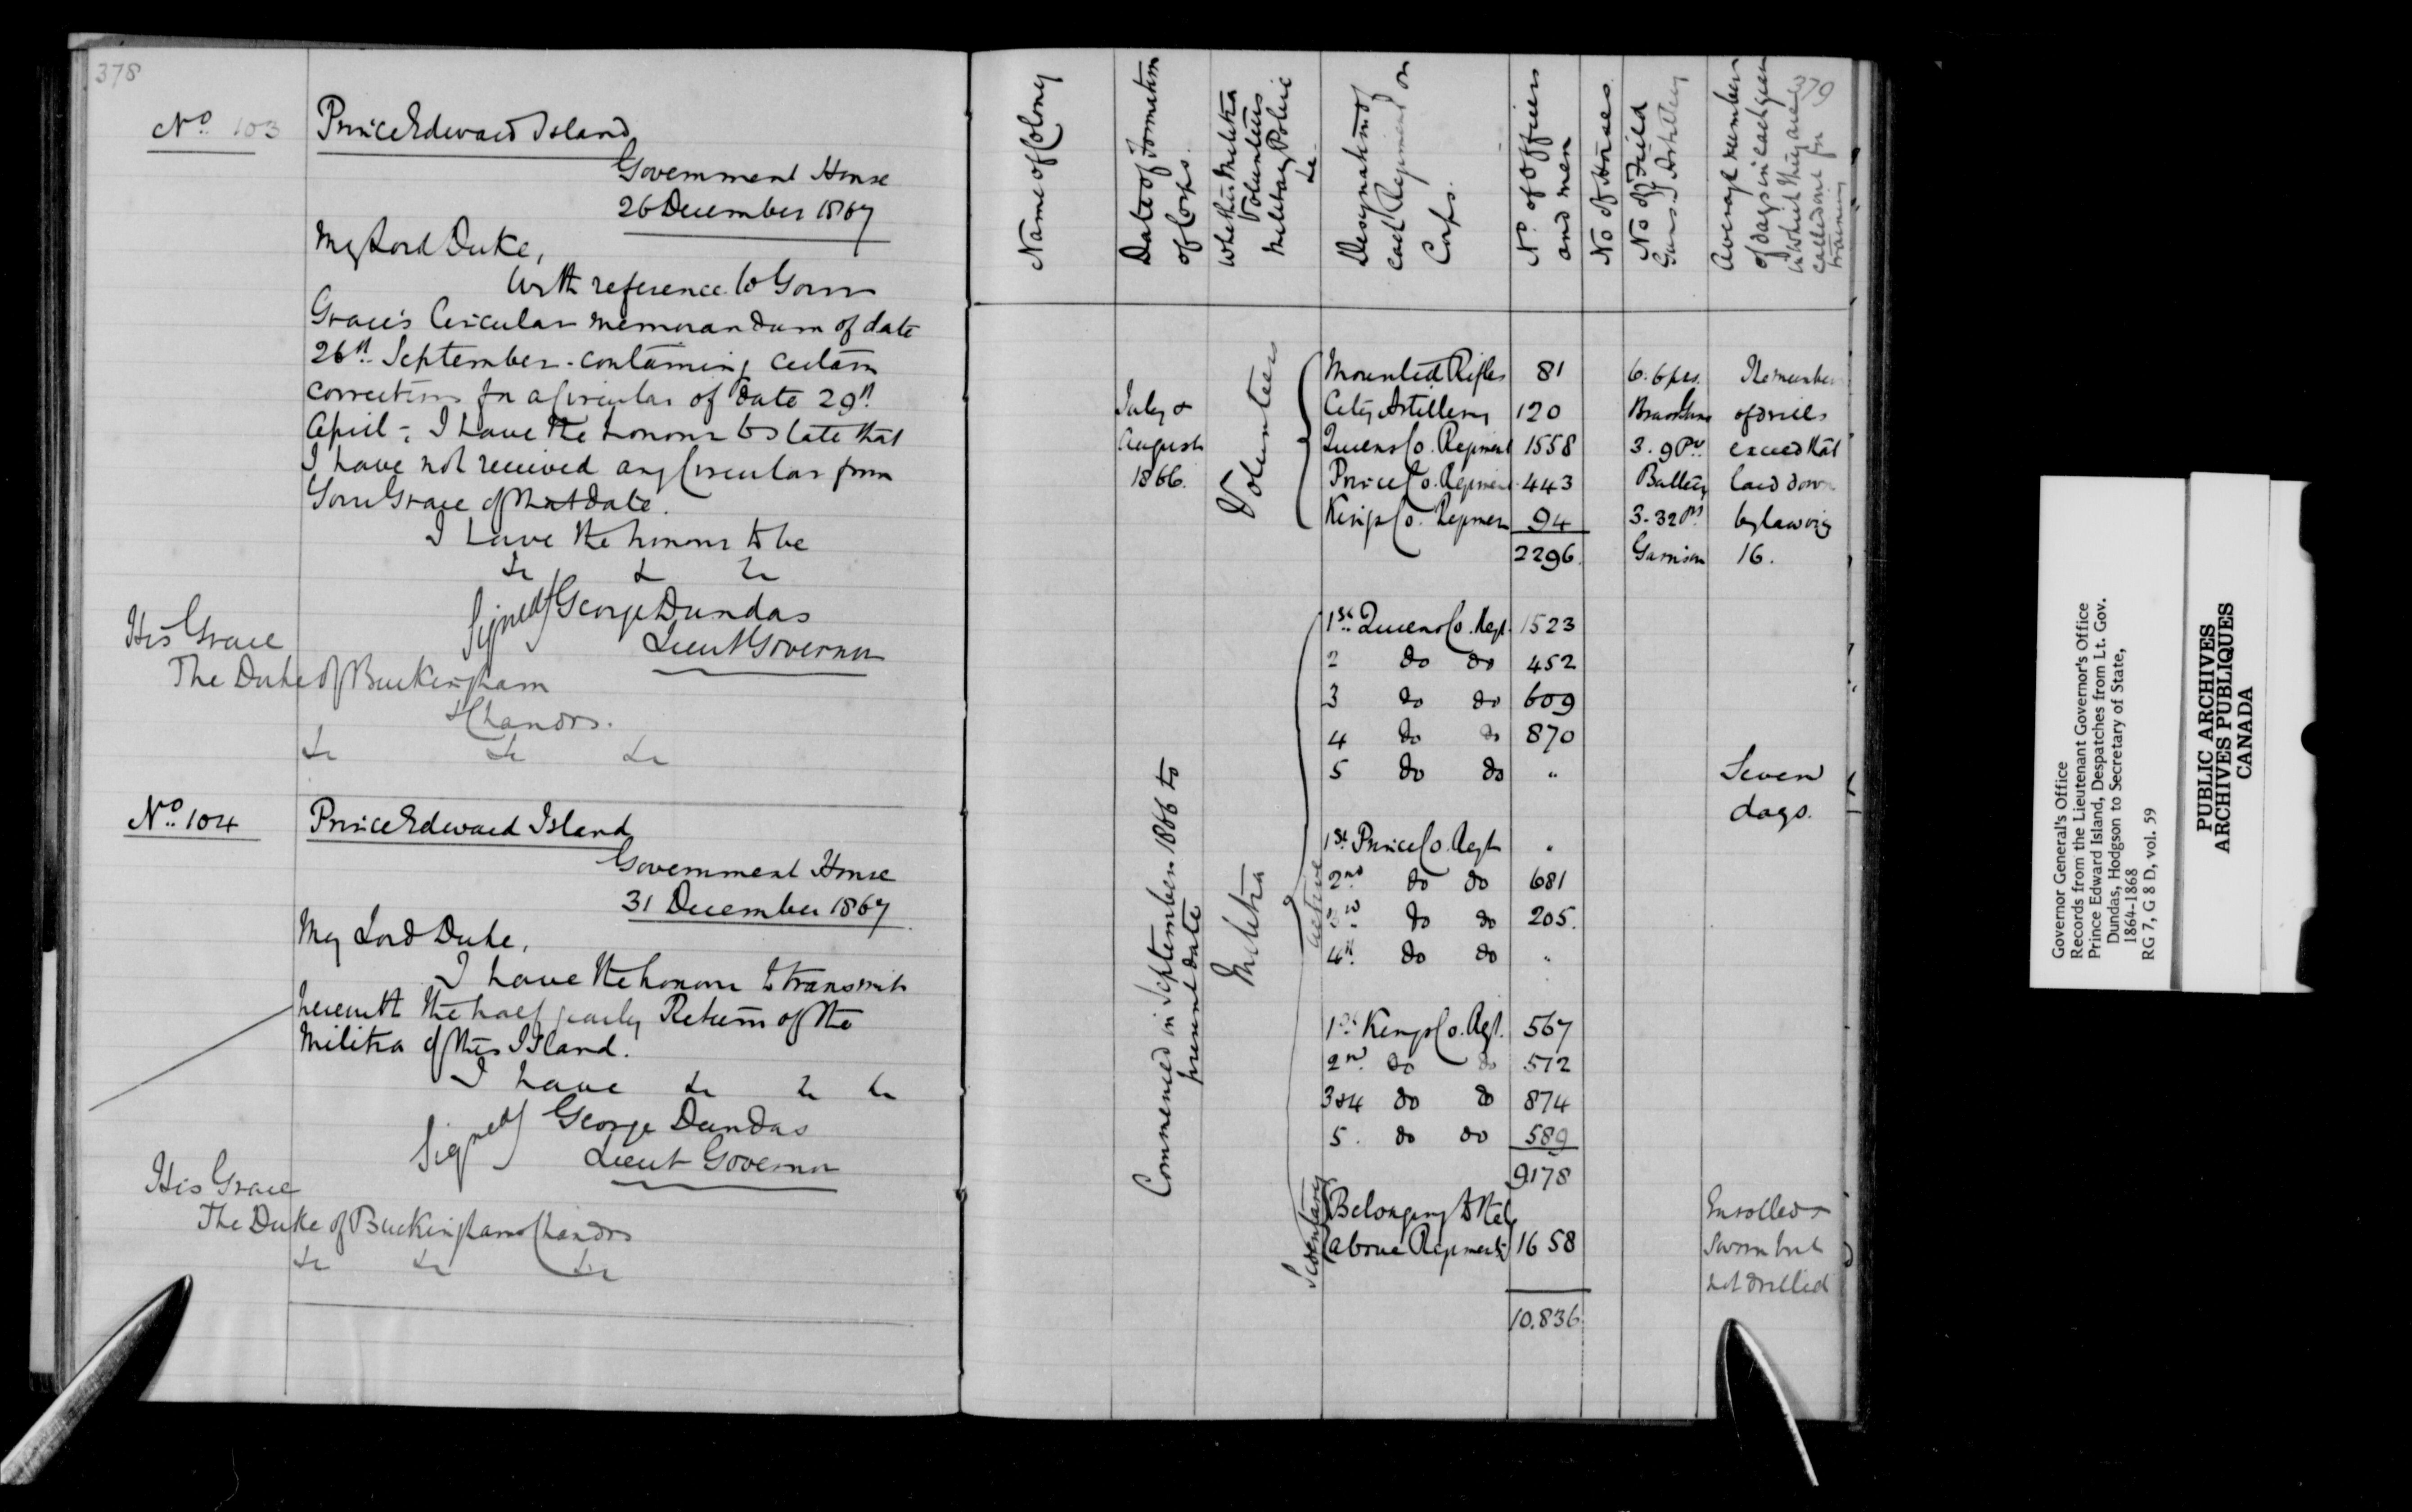 378
No. 103
Prince Edward Island
Government House
26 December 1867
My Lord Duke,
With reference to Your
Grace's Circular memorandum of date
26th September - containing certain
corrections for a Circular of date 29th
April -, I have the honour to state that
I have not received any Circular from
Your Grace of that date.
I have the honour to be
&c &c &c
Signed/ George Dundas
Lieut Governor
His Grace
The Duke of Buckingham
& Chandos.
&c &c &c
No. 104
Prince Edward Island
Government House
31 December 1867
My Lord Duke,
I have the honour to transmit
herewith the half yearly Return of the
Militia of this Island.
I have &c &c &c
Signed/ George Dundas
Lieut Governor
His Grace
The Duke of Buckingham & Chandos
&c &c &c
379
Name of Colony
Date of Formation
of Corps.
Whether Militia
Volunteers
Military Police
&c.
Designation of
each Regiment or
Corps.
No. of Officers
and men
No of Horses
No of Field
Guns of Artillery
Average number
of days in each year
in which they are
called out for
training
July &
August
1866.
Volunteers
Mounted Rifles 81 6. 6 prs. The number
City Artillery 120 Brass Guns of drills
Queens Co. Regiment 1558 3. 9 Pr. exceed that
Prince Co. Regiment 443 Battery laid down
Kings Co. Regimen 94 3-32 Prs by law viz
2296. Garrison 16.
Commenced in September 1866 to
present date
Militia
active
1st. Queens Co. Regt. 1523
2 do do 452
3 do do 609
4 do do 870
5 do do "
Seven
days.
1st. Prince Co. Regt "
2nd do do 681
3rd. do do 205.
4th. do do "
1st Kings Co. Regt. 567
2nd. do do 572
3 & 4 do do 874
5. do do 589
9178
Sedentary
Belonging to the
above Regiments 1658
Enrolled &
Sworn but
not drilled
10.836
Governor General's Office
Records from the Lieutenant Governor's Office
Prince Edward Island, Despatches from Lt. Gov.
Dundas, Hodgson to Secretary of State,
1864-1868
RG 7, G 8 D, vol. 59
PUBLIC ARCHIVES
ARCHIVES PUBLIQUES
CANADA